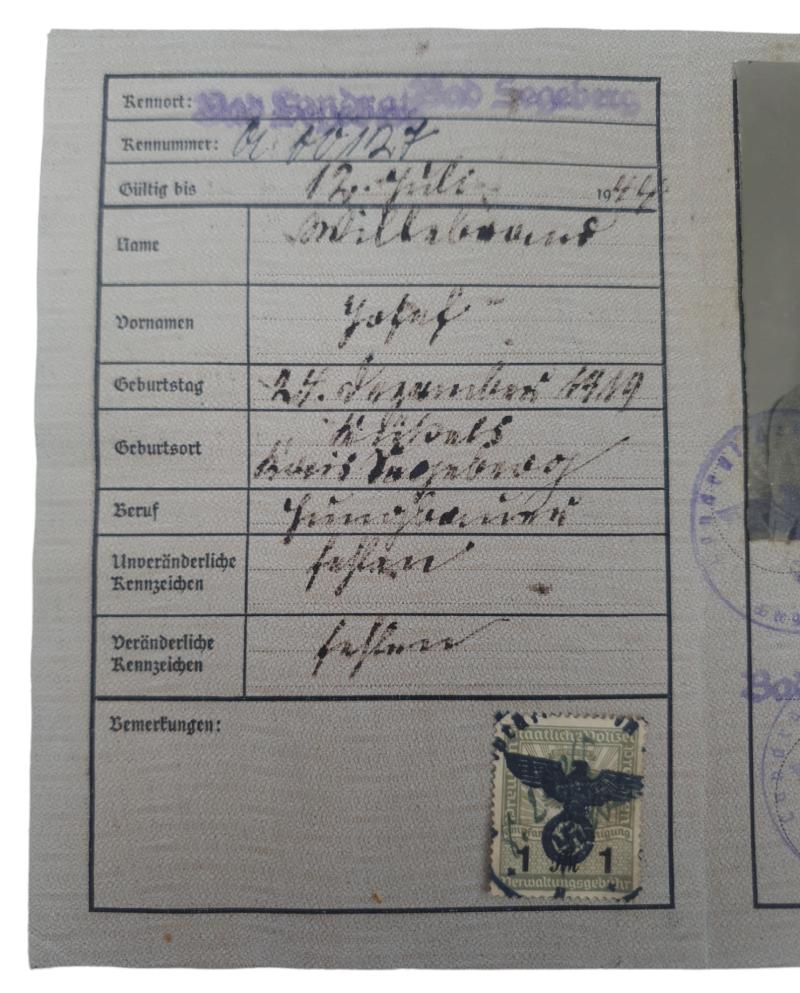 Kennort: Der Landrat Bad Segeberg
Kennummer: A 00127
Gültig bis 12. Juli 1944
Name Willebrand
Vornamen Josef
Geburtstag 24. Dezember 1919
Geburtsort
Kreis Segeberg
Beruf Jungbauer
Unveränderliche fehlen
Kennzeichen
Veränderliche fehlen
Kennzeichen
Bemerkungen:
Staatliche Polizei
1 RM 1
Verwaltungsgebühr
Bad